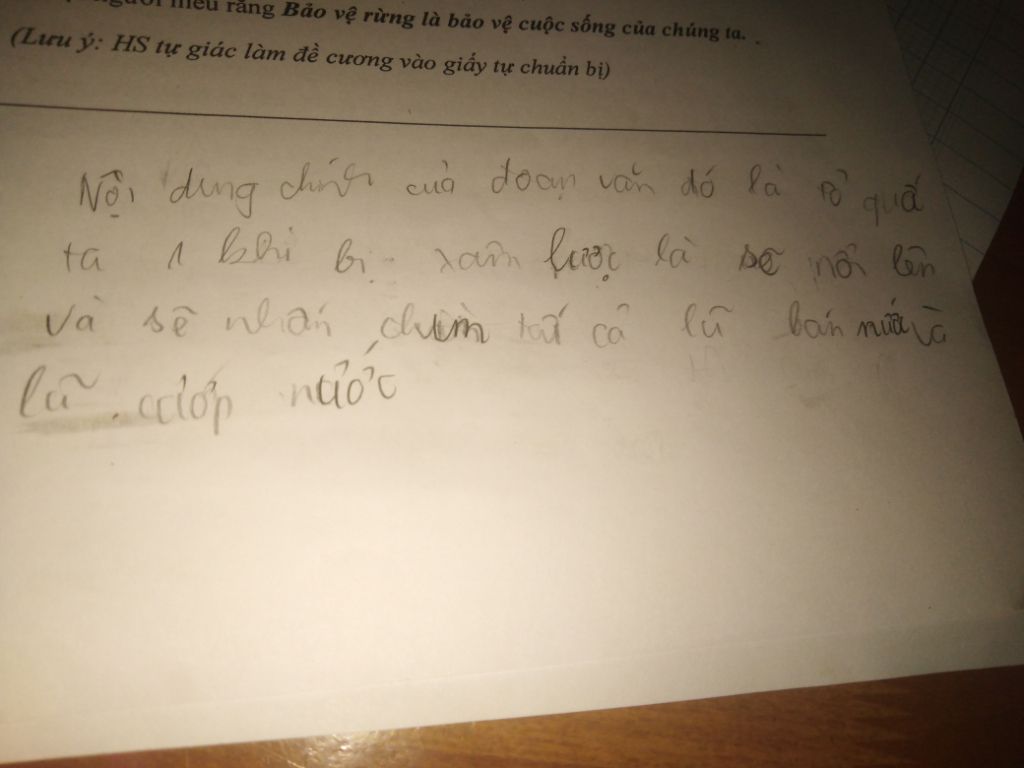 hiểu rằng Bảo vệ rừng là bảo vệ cuộc sống của chúng ta.
(Lưu ý: HS tự giác làm đề cương vào giấy tự chuẩn bị)
Nội dung chính của đoạn văn đó là tổ quố
ta 1 khi bị xâm lược là sẽ nổi lên
và sẽ nhấn chìm tất cả lũ bán nước và
lũ cướp nước